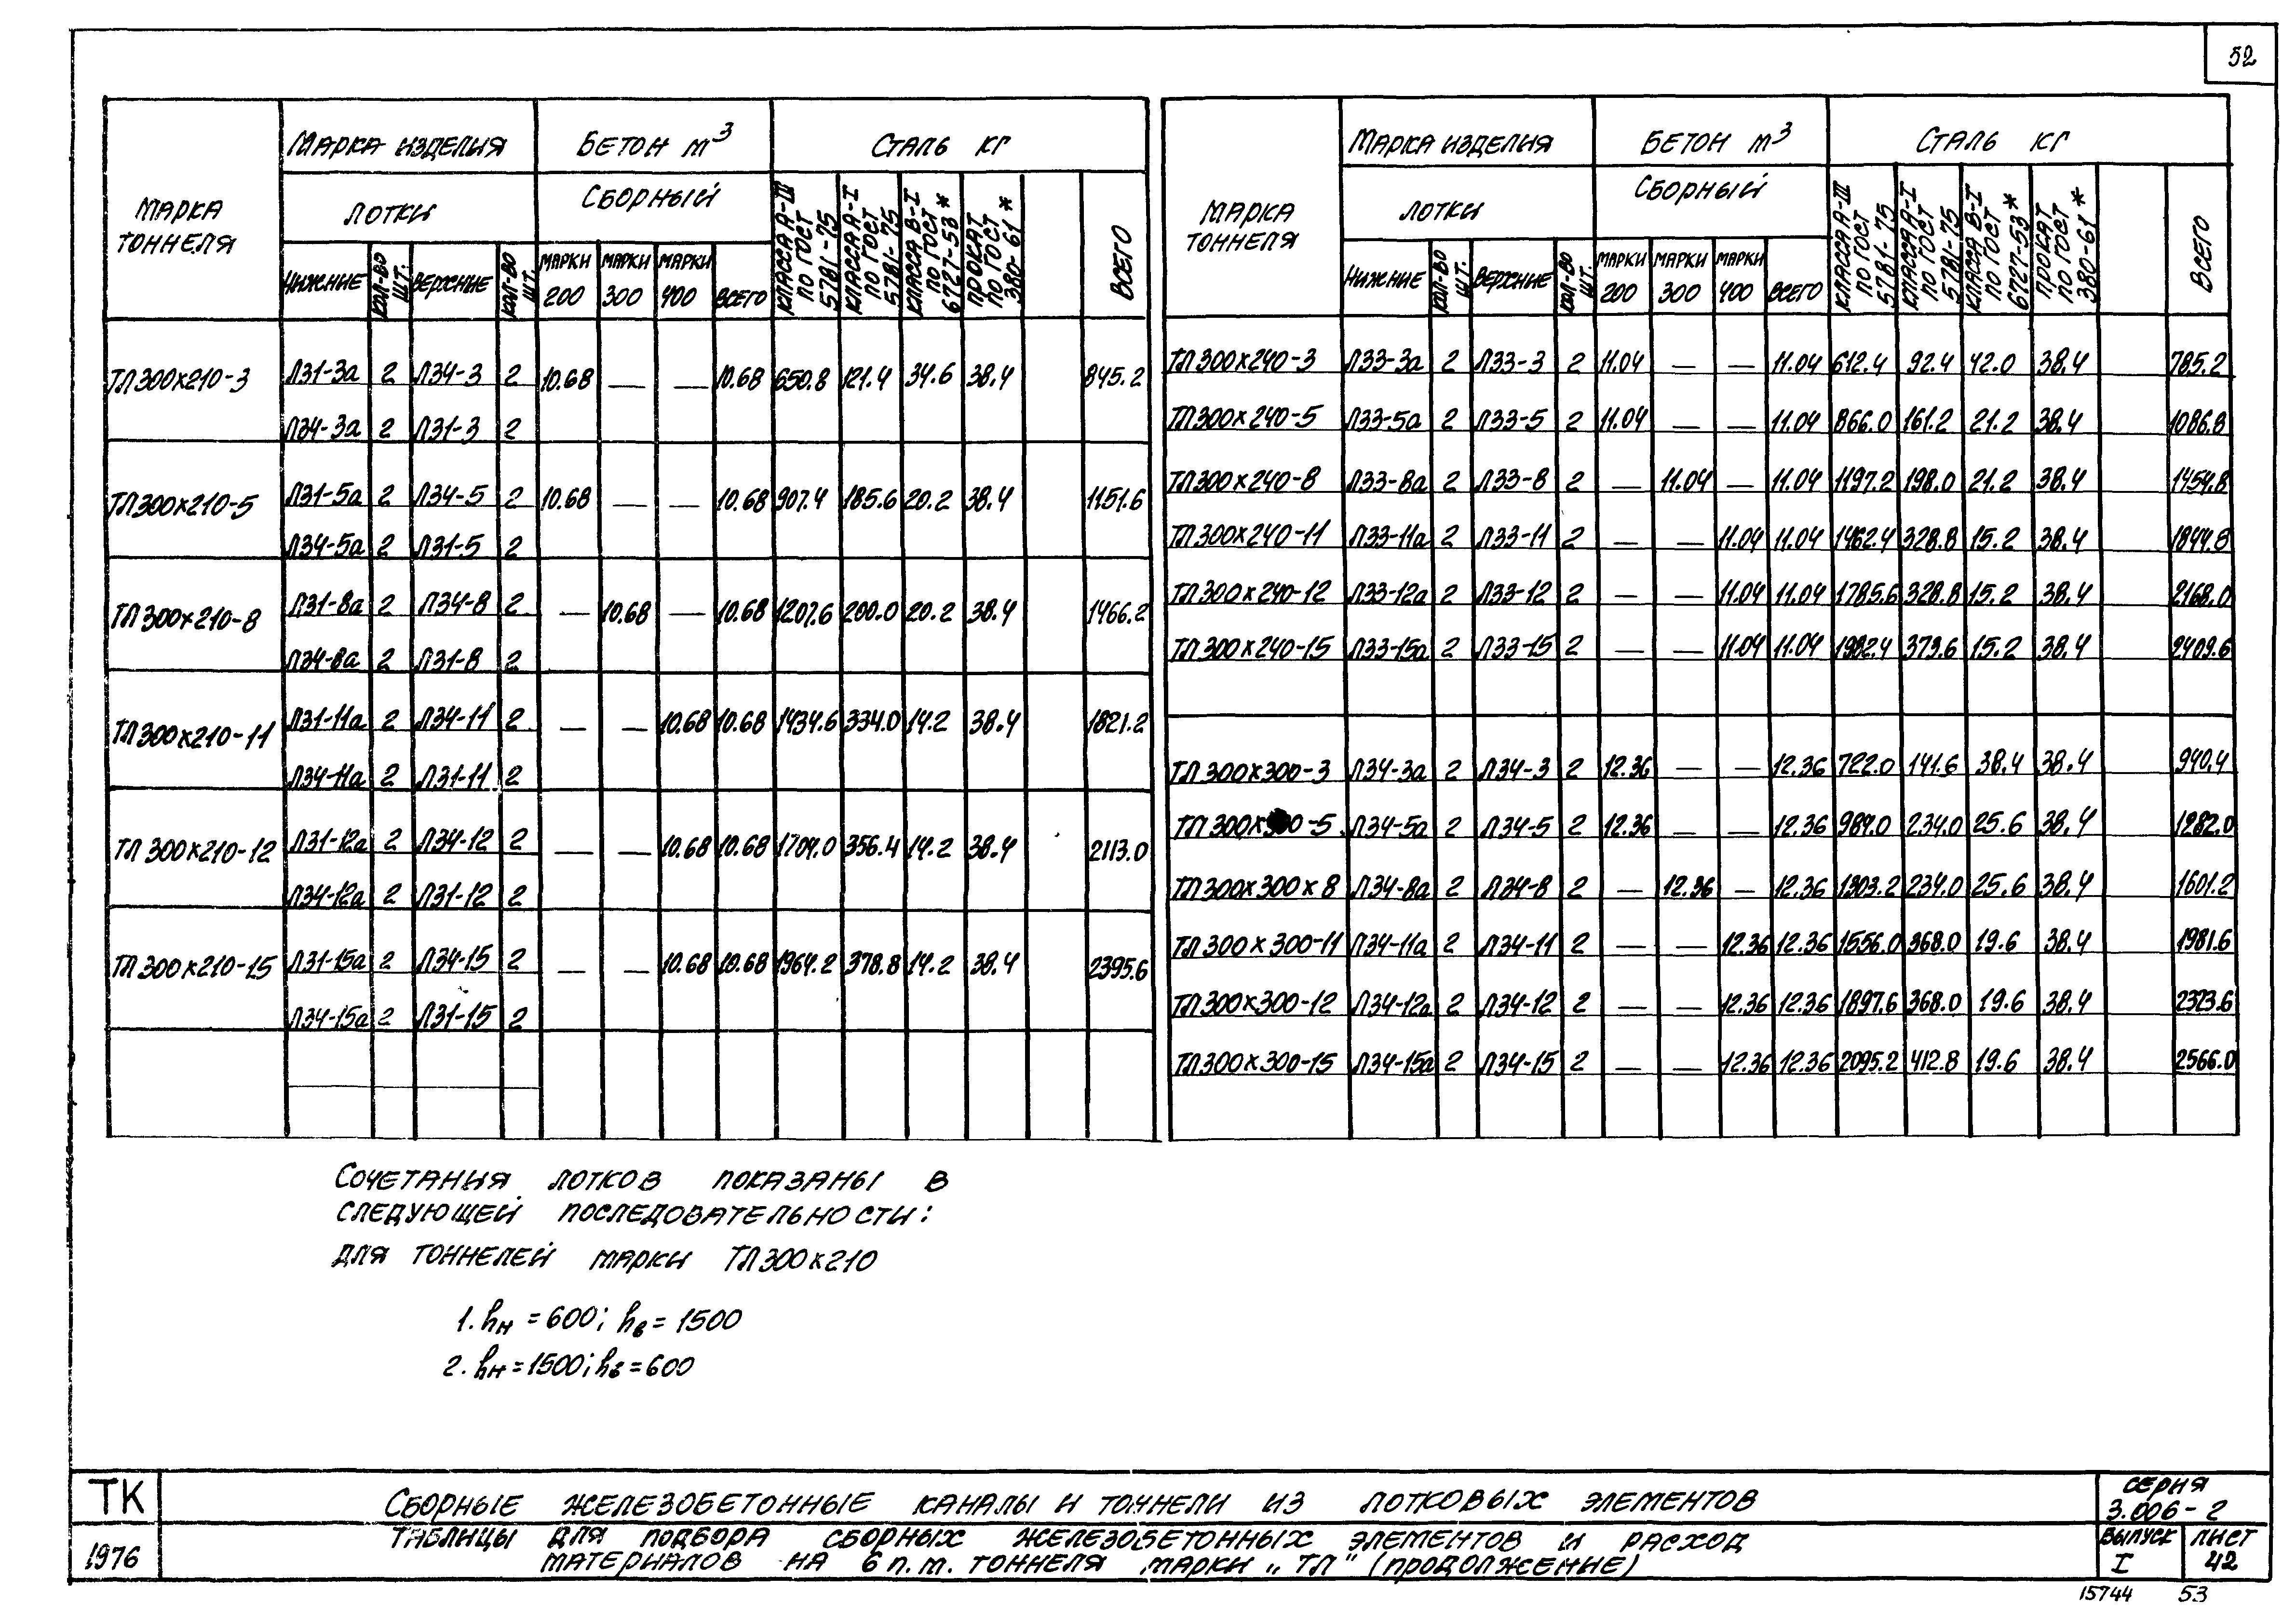 52
МАРКА ТОННЕЛЯ | МАРКА ИЗДЕЛИЯ | БЕТОН м³ | СТАЛЬ КГ
ЛОТКИ | СБОРНЫЙ | КЛАССА А-III ПО ГОСТ 5781-75 | КЛАССА А-I ПО ГОСТ 5781-75 | КЛАССА В-I ПО ГОСТ 6727-53* | ПРОКАТ ПО ГОСТ 380-61* | ВСЕГО
НИЖНИЕ | КОЛ-ВО ШТ. | ВЕРХНИЕ | КОЛ-ВО ШТ. | МАРКИ 200 | МАРКИ 300 | МАРКИ 400 | ВСЕГО
ТЛ300х210-3 | Л31-3а | 2 | Л34-3 | 2 | 10.68 | — | — | 10.68 | 650.8 | 121.4 | 34.6 | 38.4 | 845.2
Л34-3а | 2 | Л31-3 | 2
ТЛ300х210-5 | Л31-5а | 2 | Л34-5 | 2 | 10.68 | — | — | 10.68 | 907.4 | 185.6 | 20.2 | 38.4 | 1151.6
Л34-5а | 2 | Л31-5 | 2
ТЛ300х210-8 | Л31-8а | 2 | Л34-8 | 2 | — | 10.68 | — | 10.68 | 1207.6 | 200.0 | 20.2 | 38.4 | 1466.2
Л34-8а | 2 | Л31-8 | 2
ТЛ300х210-11 | Л31-11а | 2 | Л34-11 | 2 | — | — | 10.68 | 10.68 | 1434.6 | 334.0 | 14.2 | 38.4 | 1821.2
Л34-11а | 2 | Л31-11 | 2
ТЛ300х210-12 | Л31-12а | 2 | Л34-12 | 2 | — | — | 10.68 | 10.68 | 1704.0 | 356.4 | 14.2 | 38.4 | 2113.0
Л34-12а | 2 | Л31-12 | 2
ТЛ300х210-15 | Л31-15а | 2 | Л34-15 | 2 | — | — | 10.68 | 10.68 | 1964.2 | 378.8 | 14.2 | 38.4 | 2395.6
Л34-15а | 2 | Л31-15 | 2
МАРКА ТОННЕЛЯ | МАРКА ИЗДЕЛИЯ | БЕТОН м³ | СТАЛЬ КГ
ЛОТКИ | СБОРНЫЙ | КЛАССА А-III ПО ГОСТ 5781-75 | КЛАССА А-I ПО ГОСТ 5781-75 | КЛАССА В-I ПО ГОСТ 6727-53* | ПРОКАТ ПО ГОСТ 380-61* | ВСЕГО
НИЖНИЕ | КОЛ-ВО ШТ. | ВЕРХНИЕ | КОЛ-ВО ШТ. | МАРКИ 200 | МАРКИ 300 | МАРКИ 400 | ВСЕГО
ТЛ300х240-3 | Л33-3а | 2 | Л33-3 | 2 | 11.04 | — | — | 11.04 | 612.4 | 92.4 | 42.0 | 38.4 | 785.2
ТЛ300х240-5 | Л33-5а | 2 | Л33-5 | 2 | 11.04 | — | — | 11.04 | 866.0 | 161.2 | 21.2 | 38.4 | 1086.8
ТЛ300х240-8 | Л33-8а | 2 | Л33-8 | 2 | — | 11.04 | — | 11.04 | 1197.2 | 198.0 | 21.2 | 38.4 | 1454.8
ТЛ300х240-11 | Л33-11а | 2 | Л33-11 | 2 | — | — | 11.04 | 11.04 | 1462.4 | 328.8 | 15.2 | 38.4 | 1844.8
ТЛ300х240-12 | Л33-12а | 2 | Л33-12 | 2 | — | — | 11.04 | 11.04 | 1785.6 | 328.8 | 15.2 | 38.4 | 2168.0
ТЛ300х240-15 | Л33-15а | 2 | Л33-15 | 2 | — | — | 11.04 | 11.04 | 1982.4 | 373.6 | 15.2 | 38.4 | 2409.6
ТЛ300х300-3 | Л34-3а | 2 | Л34-3 | 2 | 12.36 | — | — | 12.36 | 722.0 | 141.6 | 38.4 | 38.4 | 940.4
ТЛ300х300-5 | Л34-5а | 2 | Л34-5 | 2 | 12.36 | — | — | 12.36 | 984.0 | 234.0 | 25.6 | 38.4 | 1282.0
ТЛ300х300х8 | Л34-8а | 2 | Л34-8 | 2 | — | 12.36 | — | 12.36 | 1303.2 | 234.0 | 25.6 | 38.4 | 1601.2
ТЛ300х300-11 | Л34-11а | 2 | Л34-11 | 2 | — | — | 12.36 | 12.36 | 1556.0 | 368.0 | 19.6 | 38.4 | 1981.6
ТЛ300х300-12 | Л34-12а | 2 | Л34-12 | 2 | — | — | 12.36 | 12.36 | 1897.6 | 368.0 | 19.6 | 38.4 | 2323.6
ТЛ300х300-15 | Л34-15а | 2 | Л34-15 | 2 | — | — | 12.36 | 12.36 | 2095.2 | 412.8 | 19.6 | 38.4 | 2566.0
СОЧЕТАНИЯ ЛОТКОВ ПОКАЗАНЫ В
СЛЕДУЮЩЕЙ ПОСЛЕДОВАТЕЛЬНОСТИ:
ДЛЯ ТОННЕЛЕЙ МАРКИ ТЛ300х210
1. hн = 600; hв = 1500
2. hн = 1500; hв = 600
ТК
1976
СБОРНЫЕ ЖЕЛЕЗОБЕТОННЫЕ КАНАЛЫ И ТОННЕЛИ ИЗ ЛОТКОВЫХ ЭЛЕМЕНТОВ
ТАБЛИЦЫ ДЛЯ ПОДБОРА СБОРНЫХ ЖЕЛЕЗОБЕТОННЫХ ЭЛЕМЕНТОВ И РАСХОД
МАТЕРИАЛОВ НА 6 п.м. ТОННЕЛЯ МАРКИ „ТЛ" (ПРОДОЛЖЕНИЕ)
СЕРИЯ
3.006-2
ВЫПУСК I | ЛИСТ 42
15744 53